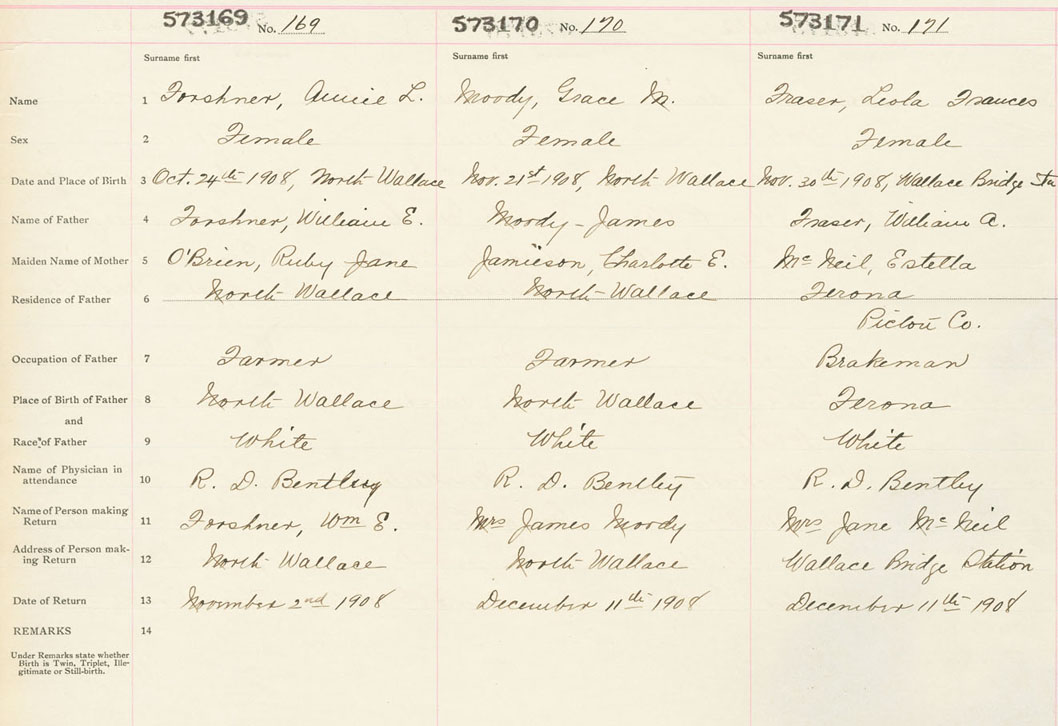 573169 No. 169 573170 No. 170 573171 No. 171
Surname first Surname first Surname first
Name 1 Forshner, Annie L. Moody, Grace M. Fraser, Leola Frances
Sex 2 Female Female Female
Date and Place of Birth 3 Oct. 24th 1908, North Wallace Nov. 21st 1908, North Wallace Nov. 30th 1908, Wallace Bridge Sta
Name of Father 4 Forshner, William E. Moody - James Fraser, William A.
Maiden Name of Mother 5 O'Brien, Ruby Jane Jamieson, Charlotte E. Mc Neil, Estella
Residence of Father 6 North Wallace North Wallace Ferona
Pictou Co.
Occupation of Father 7 Farmer Farmer Brakeman
Place of Birth of Father 8 North Wallace North Wallace Ferona
and
Race of Father 9 White White White
Name of Physician in
attendance 10 R. D. Bentley R. D. Bentley R. D. Bentley
Name of Person making
Return 11 Forshner, Wm E. Mrs James Moody Mrs Jane Mc Neil
Address of Person mak-
ing Return 12 North Wallace North Wallace Wallace Bridge Station
Date of Return 13 November 2nd 1908 December 11th 1908 December 11th 1908
REMARKS 14
Under Remarks state whether
Birth is Twin, Triplet, Ille-
gitimate or Still-birth.